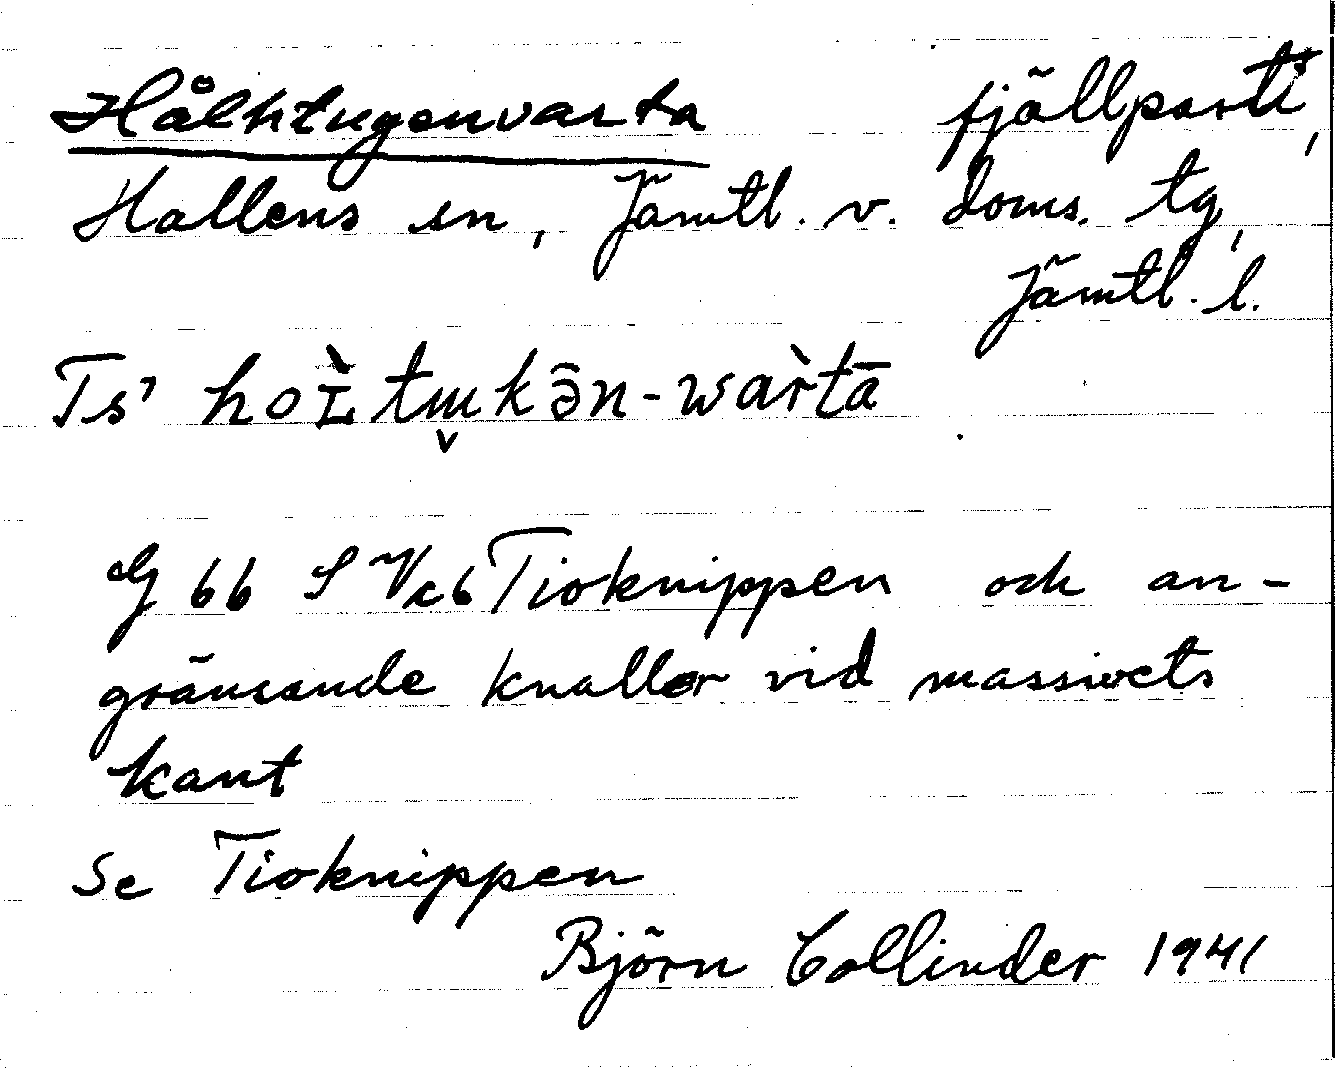 Hålhtugenvarta fjällparti,
Hallens sn, Jämtl. v. doms. tg,
Jämtl. l.
Ts' hoʟ̀tɯkə̄n-wàrtā
G 66 S V/c6 Tioknippen och an-
gränsande knallar vid massivets
kant
Se Tioknippen
Björn Collinder 1941